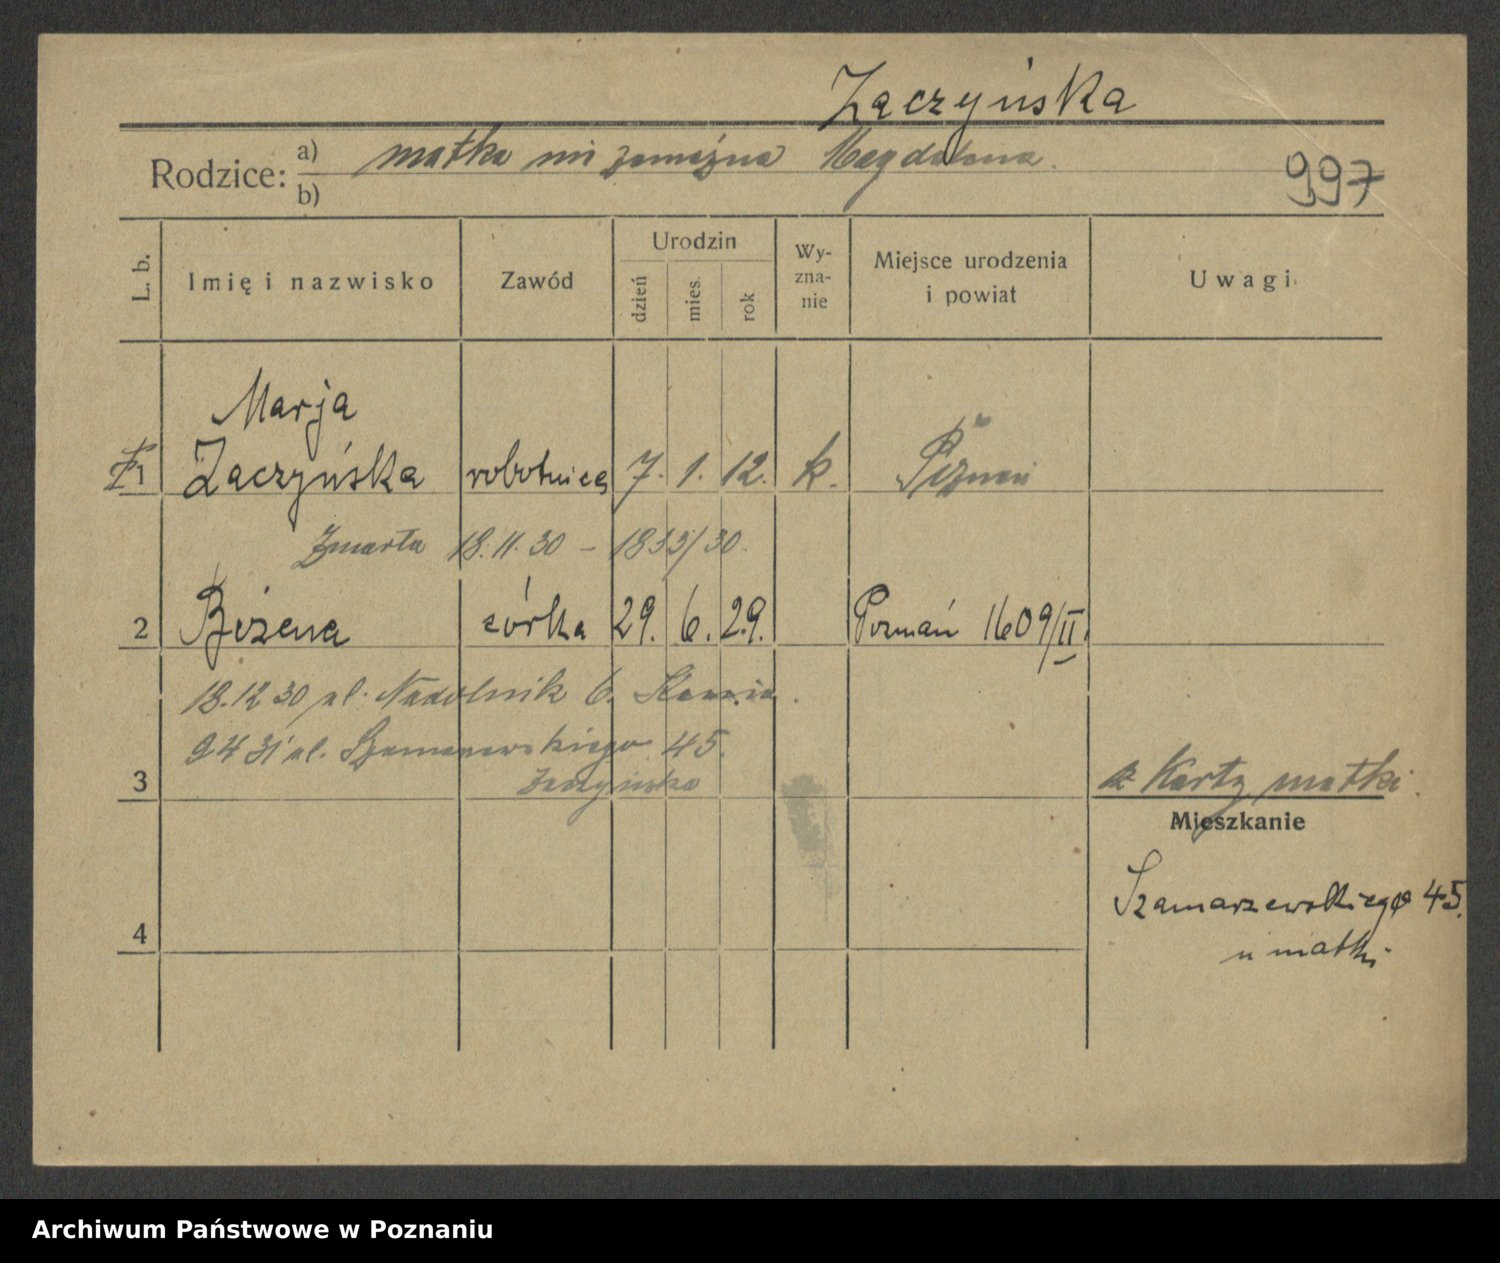 Zaczyńska
Rodzice: a) matka niezamężna Magdalena.
b)
997
L. b. Imię i nazwisko Zawód Urodzin dzień mies. rok Wy-zna-nie Miejsce urodzenia i powiat Uwagi
Marja
1 Zaczyńska robotnica 7. 1. 12. k. Poznań
Zmarła 18.11.30 – 1833/30.
2 Bożena córka 29. 6. 29. Poznań 1609/II.
18.12 30 ul. Nadolnik 6.
9 4 31 ul. Szamarzewskiego 45.
Zaczyńska
3
z Karty matki.
Mieszkanie
Szamarzewskiego 45.
u matki
4
Archiwum Państwowe w Poznaniu